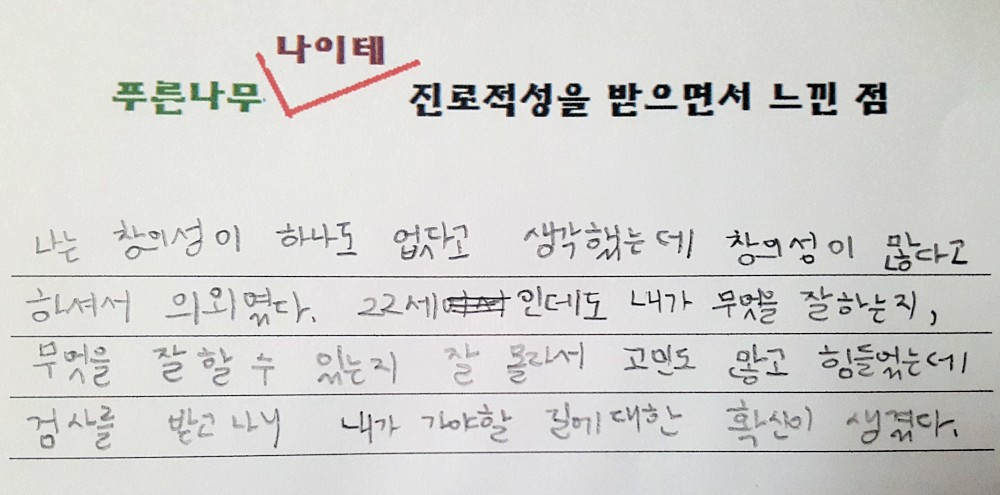 나이테
푸른나무 진로적성을 받으면서 느낀 점
나는 창의성이 하나도 없다고 생각했는데 창의성이 많다고
하셔서 의외였다. 22세인데도 내가 무엇을 잘하는지,
무엇을 잘 할 수 있는지 잘 몰라서 고민도 많고 힘들었는데
검사를 받고 나니 내가 가야할 길에 대한 확신이 생겼다.